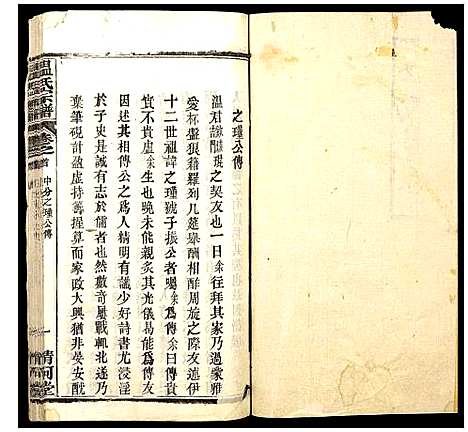 之瑾公傳
溫君 余之契友也一日余往拜其家乃過蒙雅
愛杯盤狼籍羅列几筵舉酬相酢周旋之際友述伊
十二世祖諱之瑾號子振公者囑余爲傳余曰傳貴
實不貴虛余生也晚未能親炙其光儀易能爲傳友
因述其相傳公之爲人精明有識少好詩書尤浸淫
於子史是誠有志於儒者也然數奇屢戰軌北遂乃
棄筆硯計盈虛持籌握算而家政大興猶非晏安酖
溫氏宗譜
卷之首
中分之瑾公傳
一
清河堂